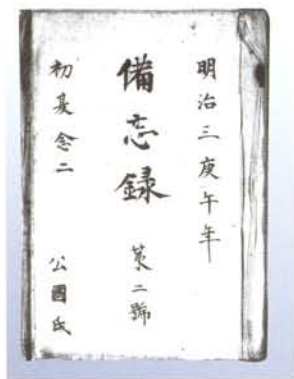 明治三庚午年
備忘録 第二號
初夏念二 公國氏